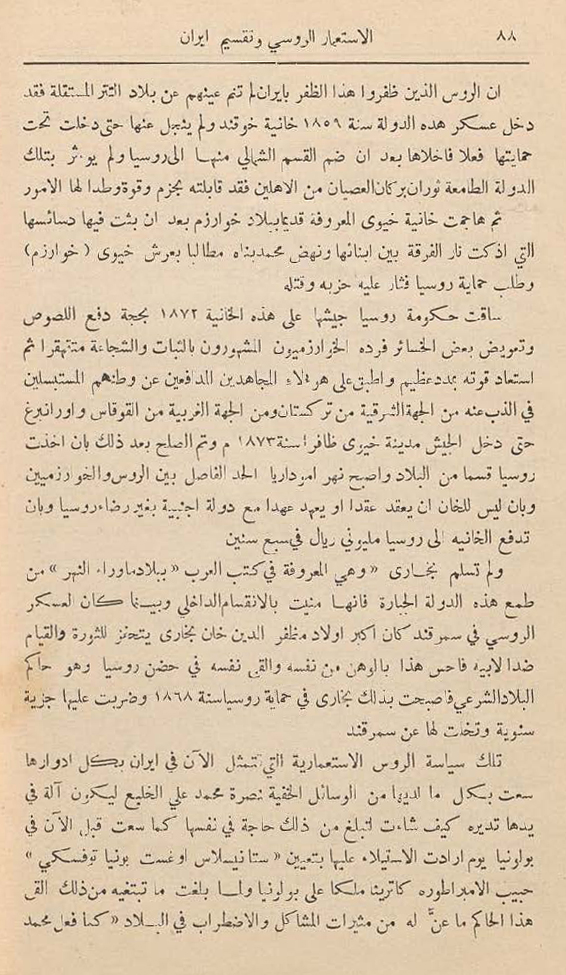 ٨٨ الاستعمار الروسي وتقسيم ايران
ان الروس الذين ظفروا هذا الظفر بايران لم تنم عينهم عن بلاد التتر المستقلة فقد
دخل عسكر هذه الدولة سنة ١٨٥٩ خانية خوقند ولم ينجل عنها حتى دخلت تحت
حمايتها فعلا فاخلاها بعد ان ضم القسم الشمالي منها الى روسيا ولم يؤثر بتلك
الدولة الطامعة ثوران بركان العصيان من الاهلين فقد قابلته بحزم وقوة وطدا لها الامور
ثم هاجمت خانية خيوى المعروفة قديما ببلاد خوارزم بعد ان بثت فيها دسائسها
التي اذكت نار الفرقة بين ابنائها ونهض محمد بناه مطالبا بعرش خيوى ( خوارزم )
وطلب حماية روسيا فثار عليه حزبه وقتله
ساقت حكومة روسيا جيشها على هذه الخانية ١٨٧٢ بحجة دفع اللصوص
وتعويض بعض الخسائر فرده الخوارزميون المشهورون بالثبات والشجاعة متقهقرا ثم
استعاد قوته بمدد عظيم واطبق على هؤلاء المجاهدين المدافعين عن وطنهم المستبسلين
في الذب عنه من الجهة الشرقية من تركستان ومن الجهة الغربية من القوقاس واورانبرغ
حتى دخل الجيش مدينة خيوى ظافرا سنة ١٨٧٣ م وتم الصلح بعد ذلك بان اخذت
روسيا قسما من البلاد واصبح نهر امو داريا الحد الفاصل بين الروس والخوارزميين
وبان ليس للخان ان يعقد عقدا او يعهد عهدا مع دولة اجنبية بغير رضاء روسيا وبان
تدفع الخانيه الى روسيا مليوني ريال في سبع سنين
ولم تسلم بخارى « وهي المعروفة في كتب العرب « ببلاد ماوراء النهر » من
طمع هذه الدولة الجبارة فانها منيت بالانقسام الداخلي وبينما كان العسكر
الروسي في سمرقند كان اكبر اولاد مظفر الدين خان بخارى يتحفز للثورة والقيام
ضد لابيه فاحس هذا بالوهن من نفسه والقى نفسه في حضن روسيا وهو حاكم
البلاد الشرعي فاصبحت بذلك بخارى في حماية روسيا سنة ١٨٦٨ وضربت عليها جزية
سنوية وتخلت لها عن سمرقند
تلك سياسة الروس الاستعمارية التي تتمثل الآن في ايران بكل ادوارها
سعت بكل ما لديها من الوسائل الخفية نصرة محمد علي الخليع ليكون آلة في
يدها تديره كيف شاءت لتبلغ من ذلك حاجة في نفسها كما سعت قبل الآن في
بولونيا يوم ارادت الاستيلاء عليها بتعيين « ستانيسلاس اوغست بونيا توفسكي »
حبيب الامبراطوره كاترينا ملكا على بولونيا ولما بلغت ما تبتغيه من ذلك القى
هذا الحاكم ما عنَّ له من مثيرات المشاكل والاضطراب في البلاد « كما فعل محمد